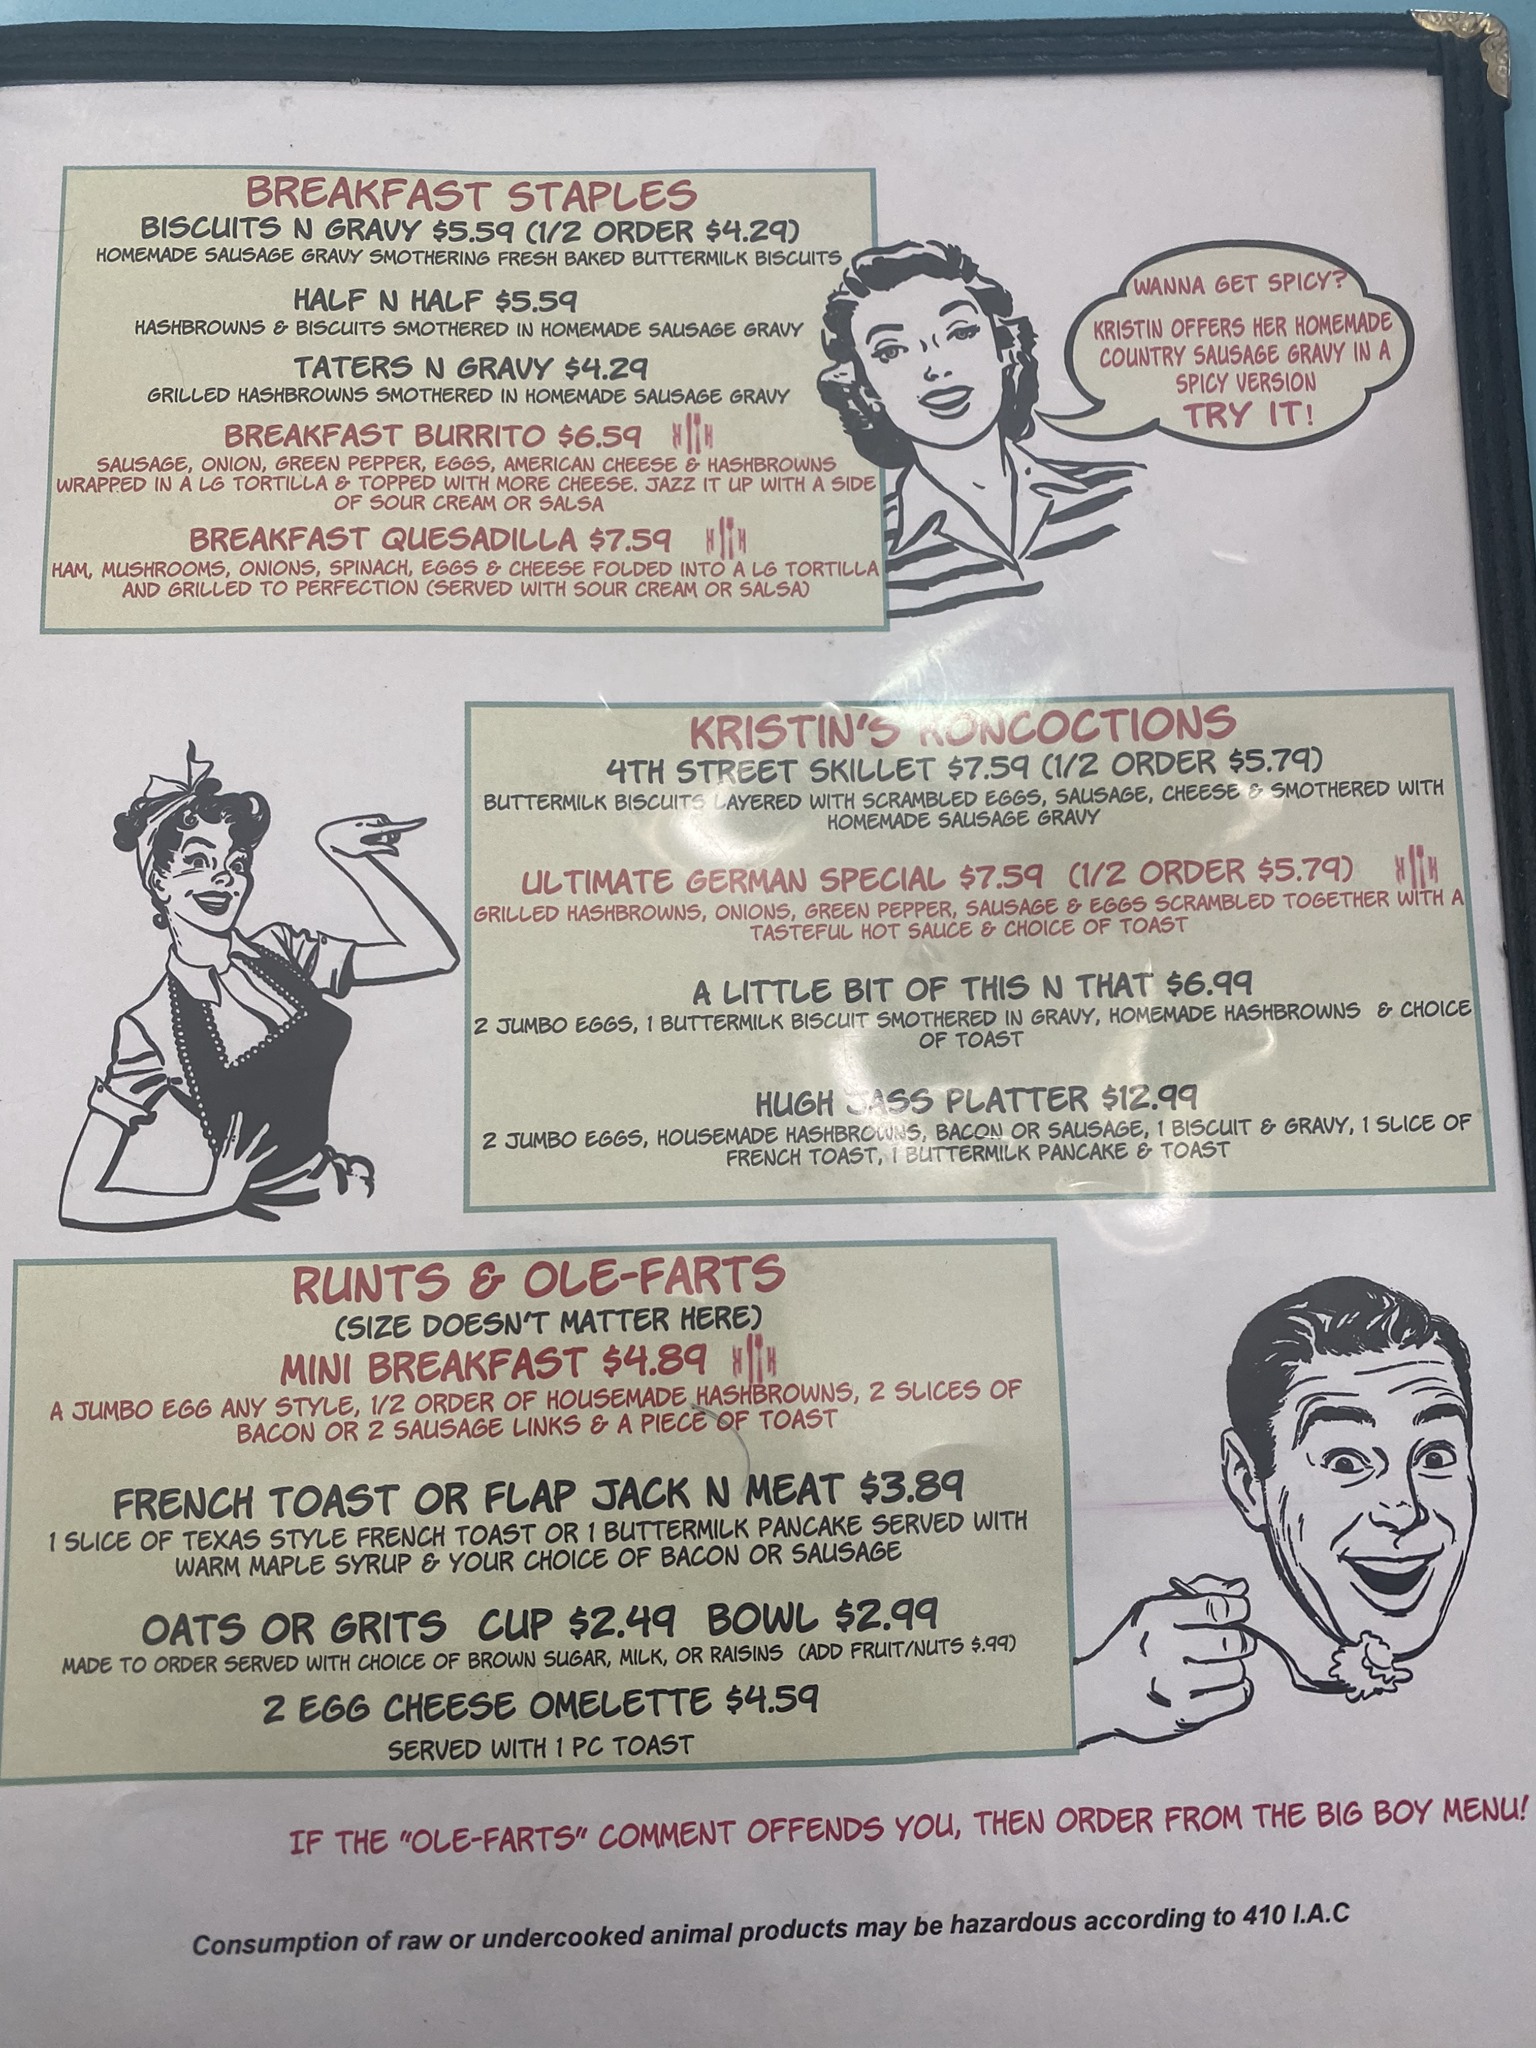 BREAKFAST STAPLES
BISCUITS N GRAVY $5.59 (1/2 ORDER $4.29)
HOMEMADE SAUSAGE GRAVY SMOTHERING FRESH BAKED BUTTERMILK BISCUITS
HALF N HALF $5.59
HASHBROWNS & BISCUITS SMOTHERED IN HOMEMADE SAUSAGE GRAVY
TATERS N GRAVY $4.29
GRILLED HASHBROWNS SMOTHERED IN HOMEMADE SAUSAGE GRAVY
BREAKFAST BURRITO $6.59 H H
SAUSAGE, ONION, GREEN PEPPER, EGGS, AMERICAN CHEESE & HASHBROWNS
WRAPPED IN A LG TORTILLA & TOPPED WITH MORE CHEESE. JAZZ IT UP WITH A SIDE
OF SOUR CREAM OR SALSA
BREAKFAST QUESADILLA $7.59 H H
HAM, MUSHROOMS, ONIONS, SPINACH, EGGS & CHEESE FOLDED INTO A LG TORTILLA
AND GRILLED TO PERFECTION (SERVED WITH SOUR CREAM OR SALSA)
WANNA GET SPICY?
KRISTIN OFFERS HER HOMEMADE
COUNTRY SAUSAGE GRAVY IN A
SPICY VERSION
TRY IT!
KRISTIN'S KONCOCTIONS
4TH STREET SKILLET $7.59 (1/2 ORDER $5.79)
BUTTERMILK BISCUITS LAYERED WITH SCRAMBLED EGGS, SAUSAGE, CHEESE & SMOTHERED WITH
HOMEMADE SAUSAGE GRAVY
ULTIMATE GERMAN SPECIAL $7.59 (1/2 ORDER $5.79) H H
GRILLED HASHBROWNS, ONIONS, GREEN PEPPER, SAUSAGE & EGGS SCRAMBLED TOGETHER WITH A
TASTEFUL HOT SAUCE & CHOICE OF TOAST
A LITTLE BIT OF THIS N THAT $6.99
2 JUMBO EGGS, 1 BUTTERMILK BISCUIT SMOTHERED IN GRAVY, HOMEMADE HASHBROWNS & CHOICE
OF TOAST
HUGH JASS PLATTER $12.99
2 JUMBO EGGS, HOUSEMADE HASHBROWNS, BACON OR SAUSAGE, 1 BISCUIT & GRAVY, 1 SLICE OF
FRENCH TOAST, 1 BUTTERMILK PANCAKE & TOAST
RUNTS & OLE-FARTS
(SIZE DOESN'T MATTER HERE)
MINI BREAKFAST $4.89 H H
A JUMBO EGG ANY STYLE, 1/2 ORDER OF HOUSEMADE HASHBROWNS, 2 SLICES OF
BACON OR 2 SAUSAGE LINKS & A PIECE OF TOAST
FRENCH TOAST OR FLAP JACK N MEAT $3.89
1 SLICE OF TEXAS STYLE FRENCH TOAST OR 1 BUTTERMILK PANCAKE SERVED WITH
WARM MAPLE SYRUP & YOUR CHOICE OF BACON OR SAUSAGE
OATS OR GRITS CUP $2.49 BOWL $2.99
MADE TO ORDER SERVED WITH CHOICE OF BROWN SUGAR, MILK, OR RAISINS (ADD FRUIT/NUTS $.99)
2 EGG CHEESE OMELETTE $4.59
SERVED WITH 1 PC TOAST
IF THE "OLE-FARTS" COMMENT OFFENDS YOU, THEN ORDER FROM THE BIG BOY MENU!
Consumption of raw or undercooked animal products may be hazardous according to 410 I.A.C